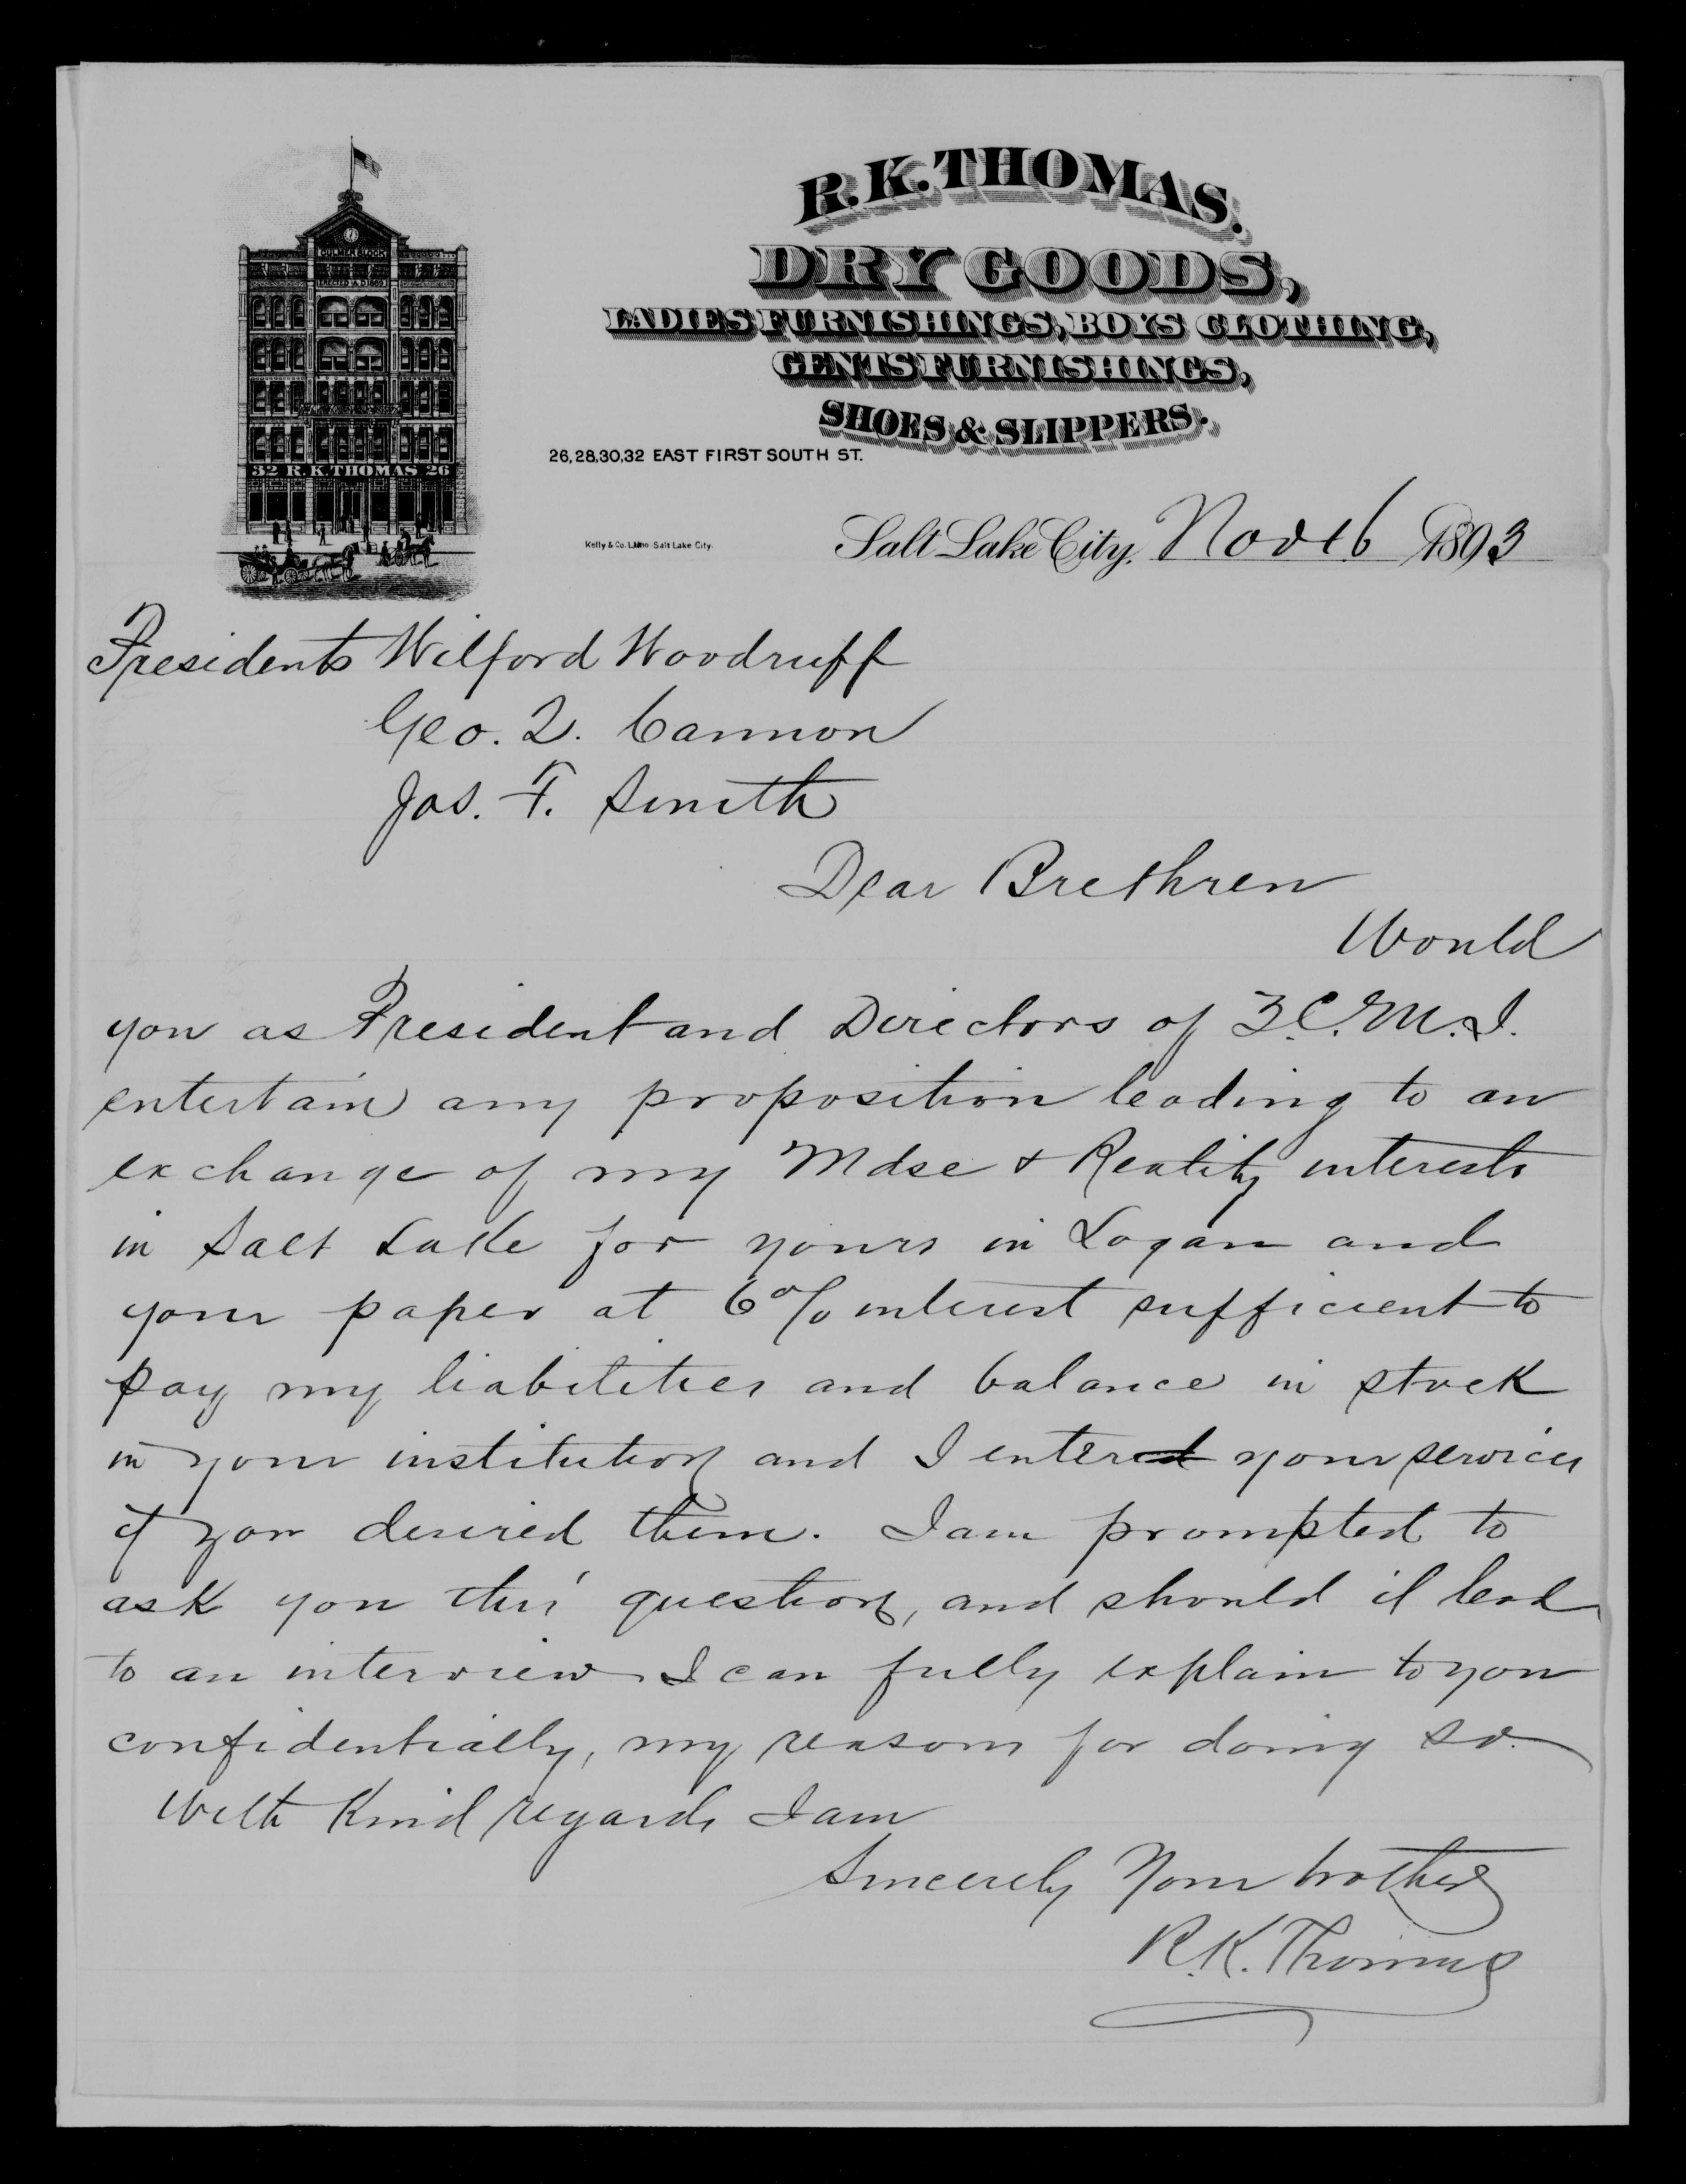 CULMER BLOCK
ERECTED A.D. 1889
32 R.K.THOMAS 26
R.K.THOMAS.
DRY GOODS,
LADIES FURNISHINGS, BOYS CLOTHING,
GENTS FURNISHINGS,
SHOES & SLIPPERS.
26,28,30,32 EAST FIRST SOUTH ST.
Kelly & Co. Litho. Salt Lake City.
Salt Lake City, Nov 16 1893
Presidents Wilford Woodruff
Geo. Q. Cannon
Jos. F. Smith
Dear Brethren
Would
you as President and Directors of Z.C.M.I.
entertain any proposition leading to an
exchange of my Mdse & Reality interests
in Salt Lake for yours in Logan and
your paper at 6% interest sufficient to
pay my liabilities and balance in stock
in your institution and I entered your services
if you desired them. I am prompted to
ask you this question, and should it lead
to an interview I can fully explain to you
confidentially, my reasons for doing so.
With Kind regards I am
Sincerely Your brother
R.K. Thomas